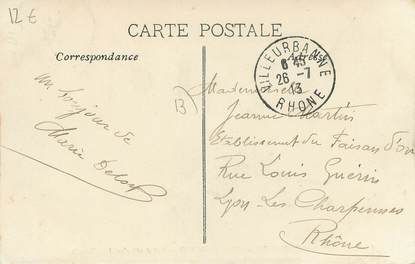 12 €
CARTE POSTALE
Correspondance
VILLEURBANNE
6 45
26 -7
13
RHONE
un bonjour de
Marie
B)
Mademoiselle
Jeanne Martin
Etablissement du Faisan d'or
Rue Louis Guérin
Lyon-Les Charpennes
Rhône